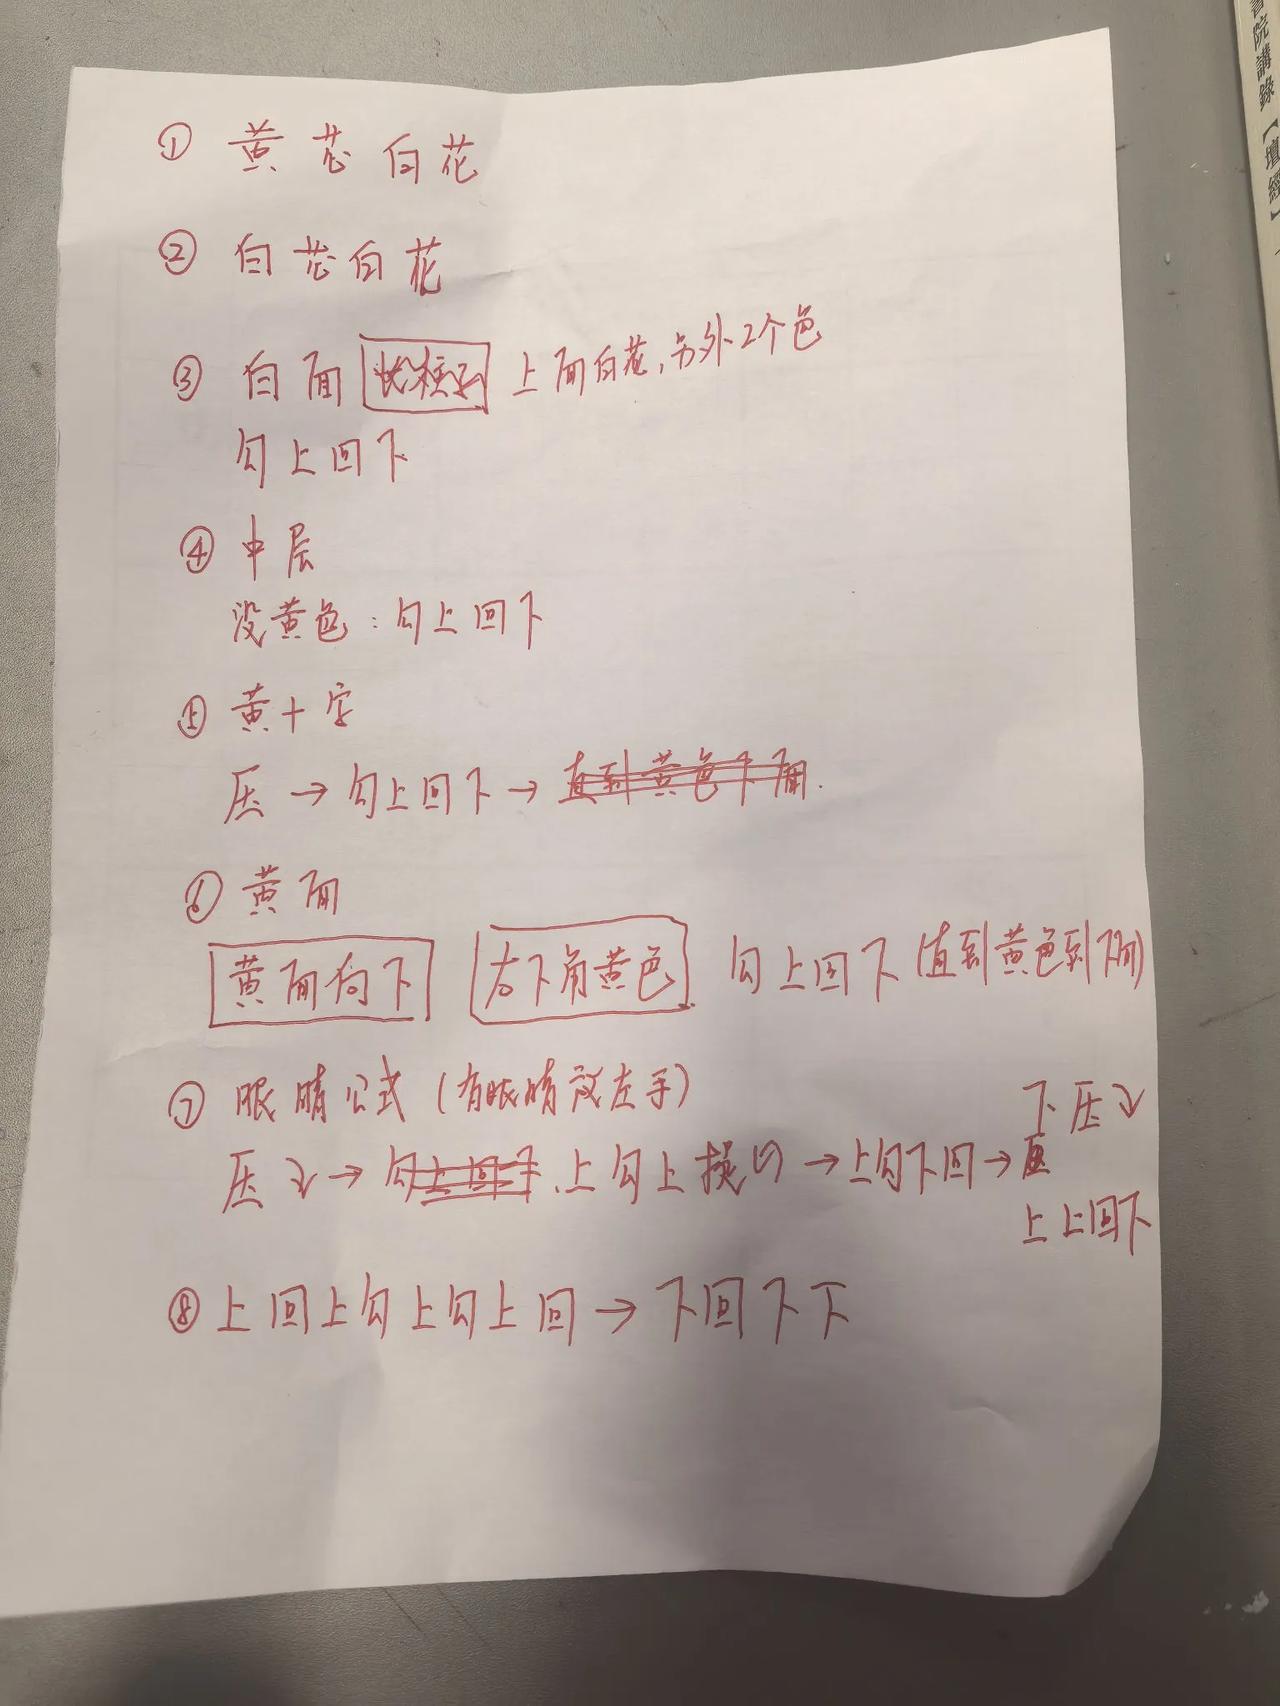 ① 黄芯白花
② 白芯白花
③ 白面 上面白花,另外2个色
勾上回下
④ 中层
没黄色:勾上回下
⑤ 黄十字
压→勾上回下→直到黄色下面.
⑥ 黄面
黄面向下 右下角黄色 勾上回下(直到黄色到下面)
⑦ 眼睛公式(有眼睛放左手)
压→勾上回下.上勾上拨→上勾下回→压
下压
上上回下
⑧ 上回上勾上勾上回→下回下下
書院講錄【壇經】